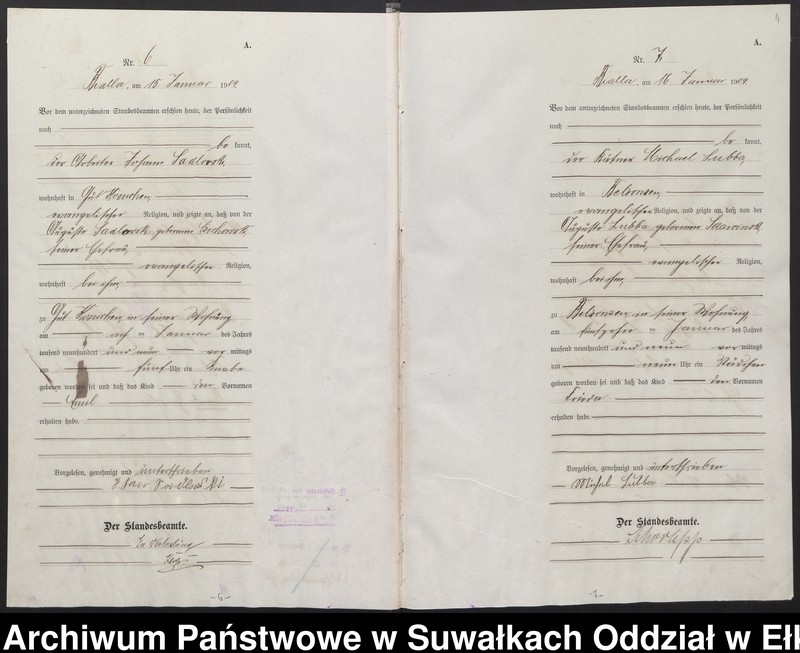 A.
Nr. 6
Bialla, am 15 Januar 1909.
Vor dem unterzeichneten Standesbeamten erschien heute, der Persönlichkeit
nach
be kannt,
der Arbeiter Johann Sadlowsk
wohnhaft in Gut
evangelischer Religion, und zeigte an, daß von der
Auguste Sadlowsk geborenen
seiner Ehefrau,
evangelischer Religion,
wohnhaft bei ihm
zu Gut in seiner Wohnung
am Januar des Jahres
tausend neunhundert und neun vor mittags
um fünf Uhr ein Knabe
geboren worden sei und daß das Kind den Vornamen
Emil
erhalten habe.
Vorgelesen, genehmigt und unterschrieben
Der Standesbeamte.
In Vertretung
-6-
4
A.
Nr. 7
Bialla, am 16 Januar 1909.
Vor dem unterzeichneten Standesbeamten erschien heute, der Persönlichkeit
nach
be kannt,
der Kätner Michael Lubba
wohnhaft in
evangelischer Religion, und zeigte an, daß von der
Auguste Lubba geborenen
seiner Ehefrau,
evangelischer Religion,
wohnhaft bei ihm
zu in seiner Wohnung
am Januar des Jahres
tausend neunhundert und neun vor mittags
um neun Uhr ein Mädchen
geboren worden sei und daß das Kind den Vornamen
Frieda
erhalten habe.
Vorgelesen, genehmigt und unterschrieben
Michael Lubba
Der Standesbeamte.
-7-
Archiwum Państwowe w Suwałkach Oddział w Ełk